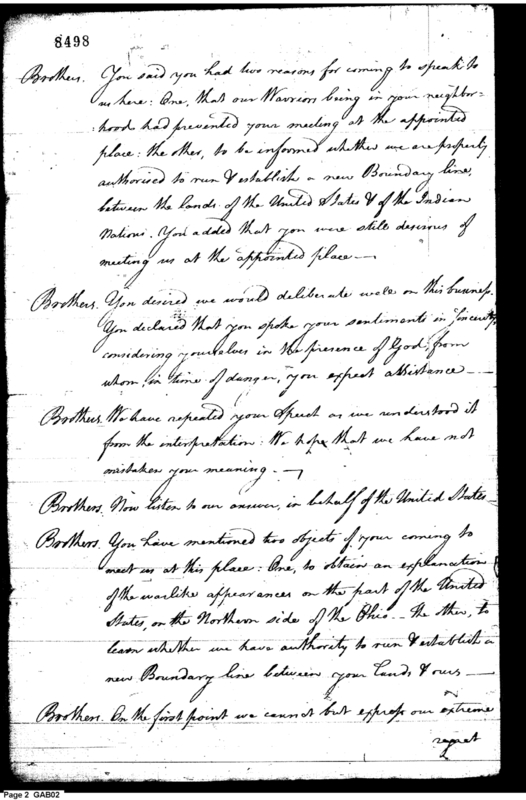 8498
Brothers. You said you had two reasons for coming to speak to
us here: One, that our Warriors being in your neighbor-
:hood had prevented your meeting at the appointed
place: the other, to be informed whether we are properly
authorised to run & establish a new Boundary line,
between the lands of the United States & of the Indian
Nations. You added that you were still desirous of
meeting us at the appointed place —
Brothers. You desired we would deliberate well on this business.
You declared that you spoke your sentiments in sincerity,
considering yourselves in the presence of God, from
whom, in time of danger, you expect assistance —
Brothers. We have repeated your Speech as we understood it
from the interpretation: We hope that we have not
mistaken your meaning. —
Brothers. Now listen to our answer, in behalf of the United States —
Brothers. You have mentioned two objects of your coming to
meet us at this place: One, to obtain an explanation
of the warlike appearances on the part of the United
States, on the Northern side of the Ohio — The other, to
learn whether we have authority to run & establish a
new Boundary line between your lands & ours —
Brothers. On the first point we cannot but express our extreme
regret
Page 2 GAB02